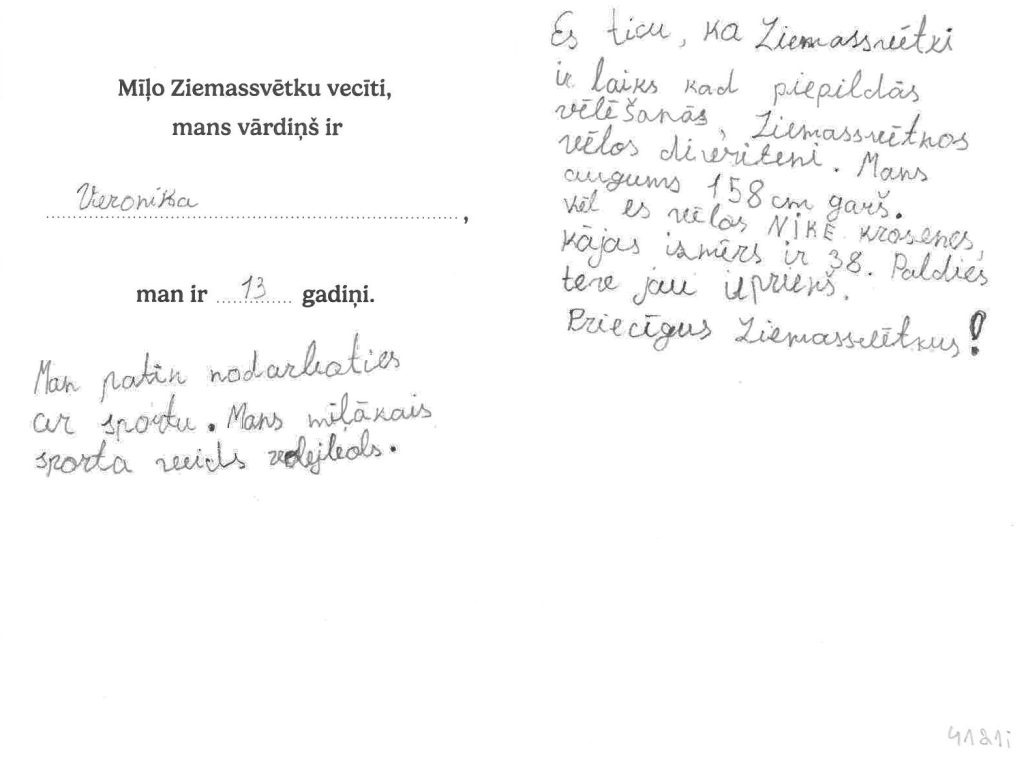 Mīļo Ziemassvētku vecīti,
mans vārdiņš ir
Veronika,
man ir 13 gadiņi.
Man patīk nodarboties
ar sportu. Mans mīļākais
sporta veids volejbols.
Es ticu, ka Ziemassvētki
ir laiks kad piepildās
vēlēšanās, Ziemassvētkos
vēlos divriteni. Mans
augums 158 cm garš.
Vēl es vēlos NIKE krosenes,
kājas izmērs ir 38. Paldies
teve jau iepriekš.
Priecīgus Ziemassvētkus!